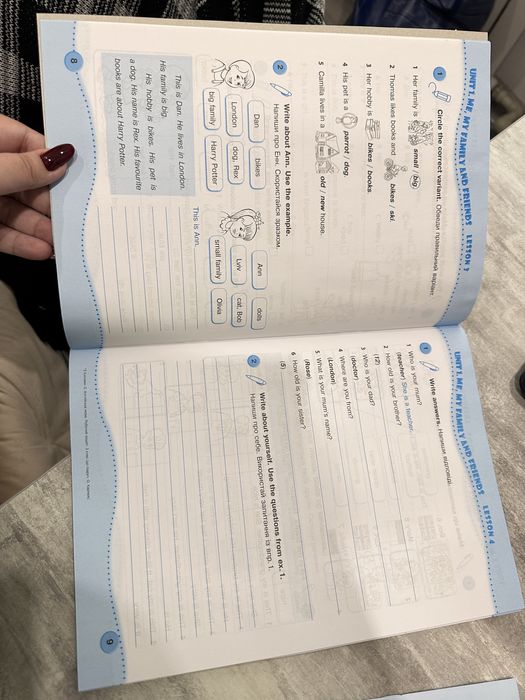 UNIT 1. ME, MY FAMILY AND FRIENDS LESSON 3
1 Circle the correct variant. Обведи правильний варіант.
1 Her family is small / big.
2 Thomas likes books and bikes / ski.
3 Her hobby is bikes / books.
4 His pet is a parrot / dog.
5 Camilla lives in a old / new house.
2 Write about Ann. Use the example.
Напиши про Енн. Скористайся зразком.
Dan bikes
London dog, Rex
big family Harry Potter
Ann dolls
Lviv cat, Bob
small family Olivia
This is Dan. He lives in London.
His family is big.
His hobby is bikes. His pet is
a dog. His name is Rex. His favourite
books are about Harry Potter.
This is Ann.
8
UNIT 1. ME, MY FAMILY AND FRIENDS LESSON 4
1 Write answers. Напиши відповіді.
1 Who is your mum?
(teacher) She is a teacher.
2 How old is your brother?
(12)
3 Who is your dad?
(doctor)
4 Where are you from?
(London)
5 What is your mum's name?
(Rose)
6 How old is your sister?
(5)
2 Write about yourself. Use the questions from ex. 1.
Напиши про себе. Використай запитання із впр. 1.
9